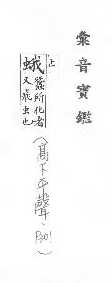 彙音寶鑑
上
蛾 蠶所化者
又飛虫也
(高下平聲、P301)